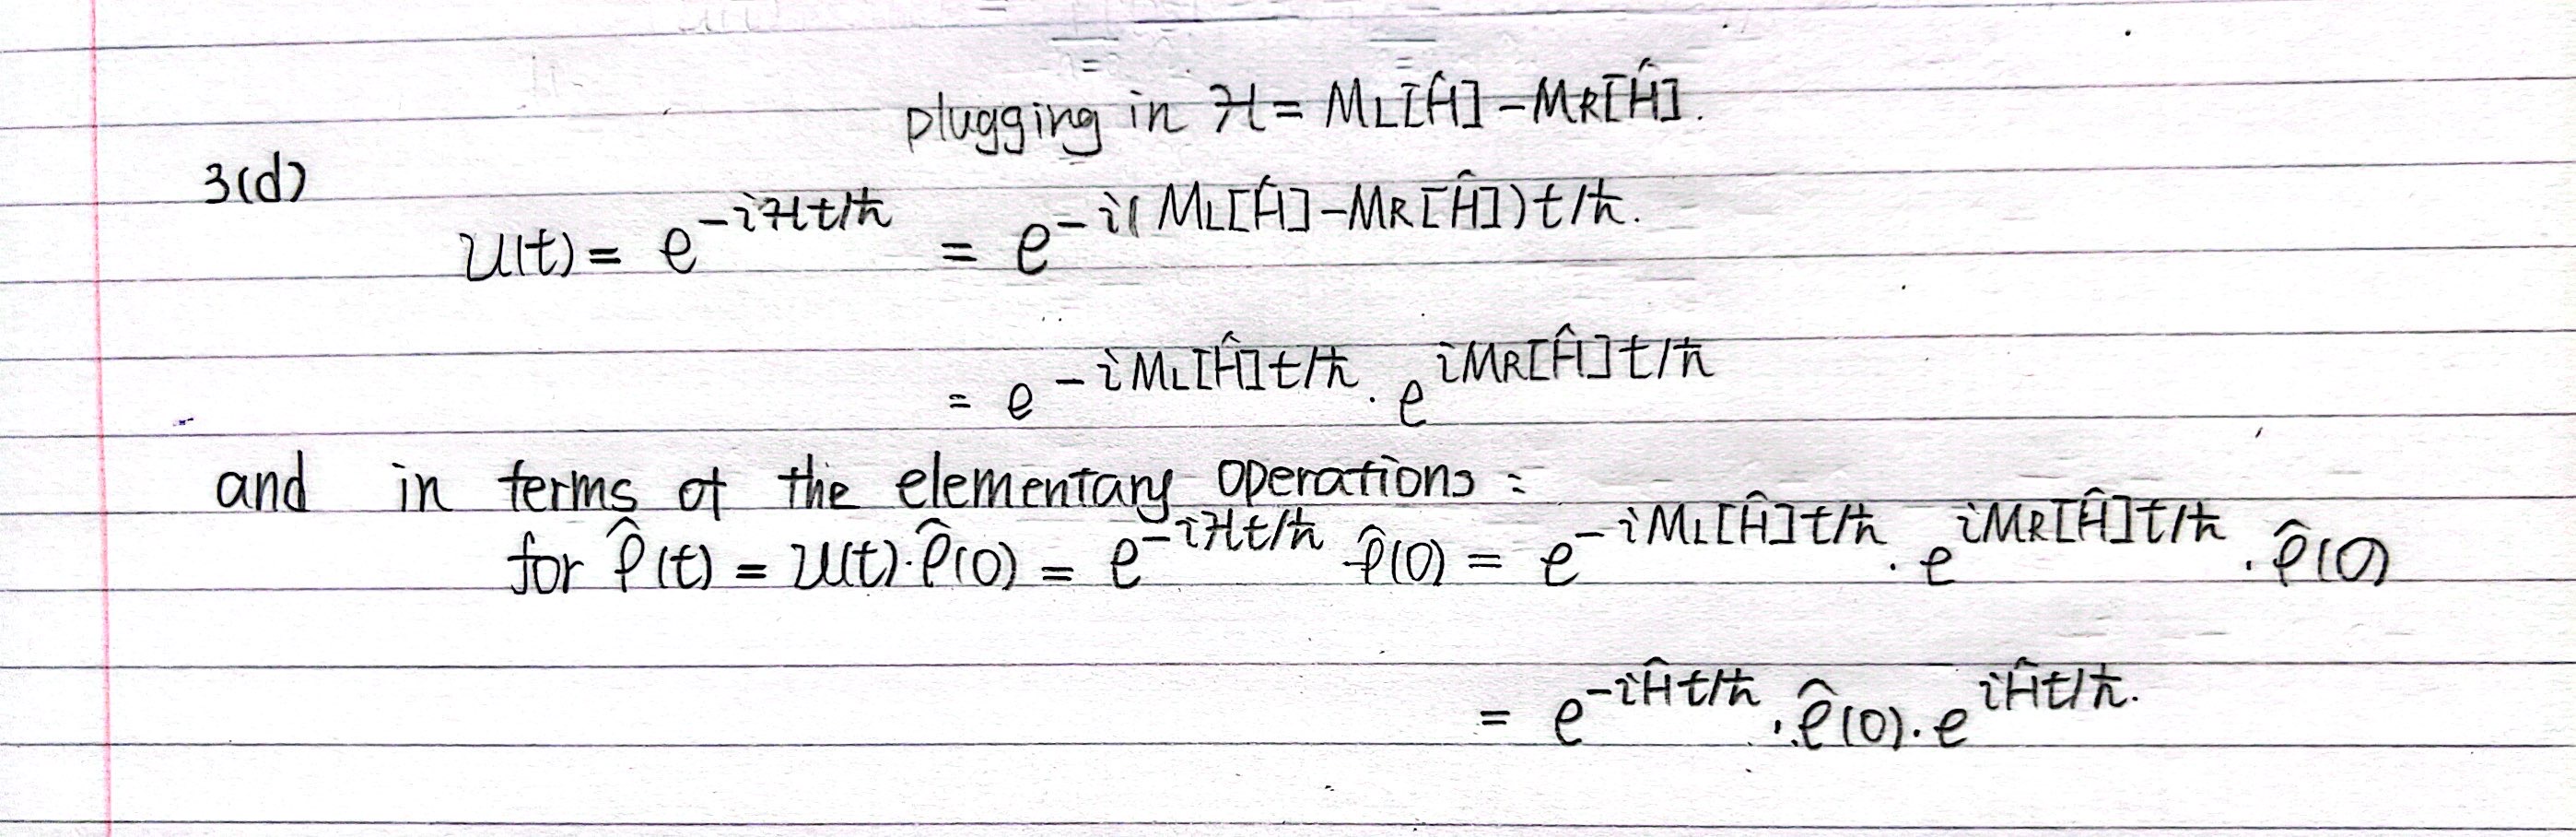 plugging in ℋ = ML[Ĥ] - MR[Ĥ].
3(d)
U(t) = e^{-iℋt/ħ} = e^{-i(ML[Ĥ]-MR[Ĥ])t/ħ}.
= e^{-iML[Ĥ]t/ħ} · e^{iMR[Ĥ]t/ħ}
and in terms of the elementary operations :
for ρ̂(t) = U(t)·ρ̂(0) = e^{-iℋt/ħ} ρ̂(0) = e^{-iML[Ĥ]t/ħ} · e^{iMR[Ĥ]t/ħ} · ρ̂(0)
= e^{-iĤt/ħ} · ρ̂(0) · e^{iĤt/ħ}.